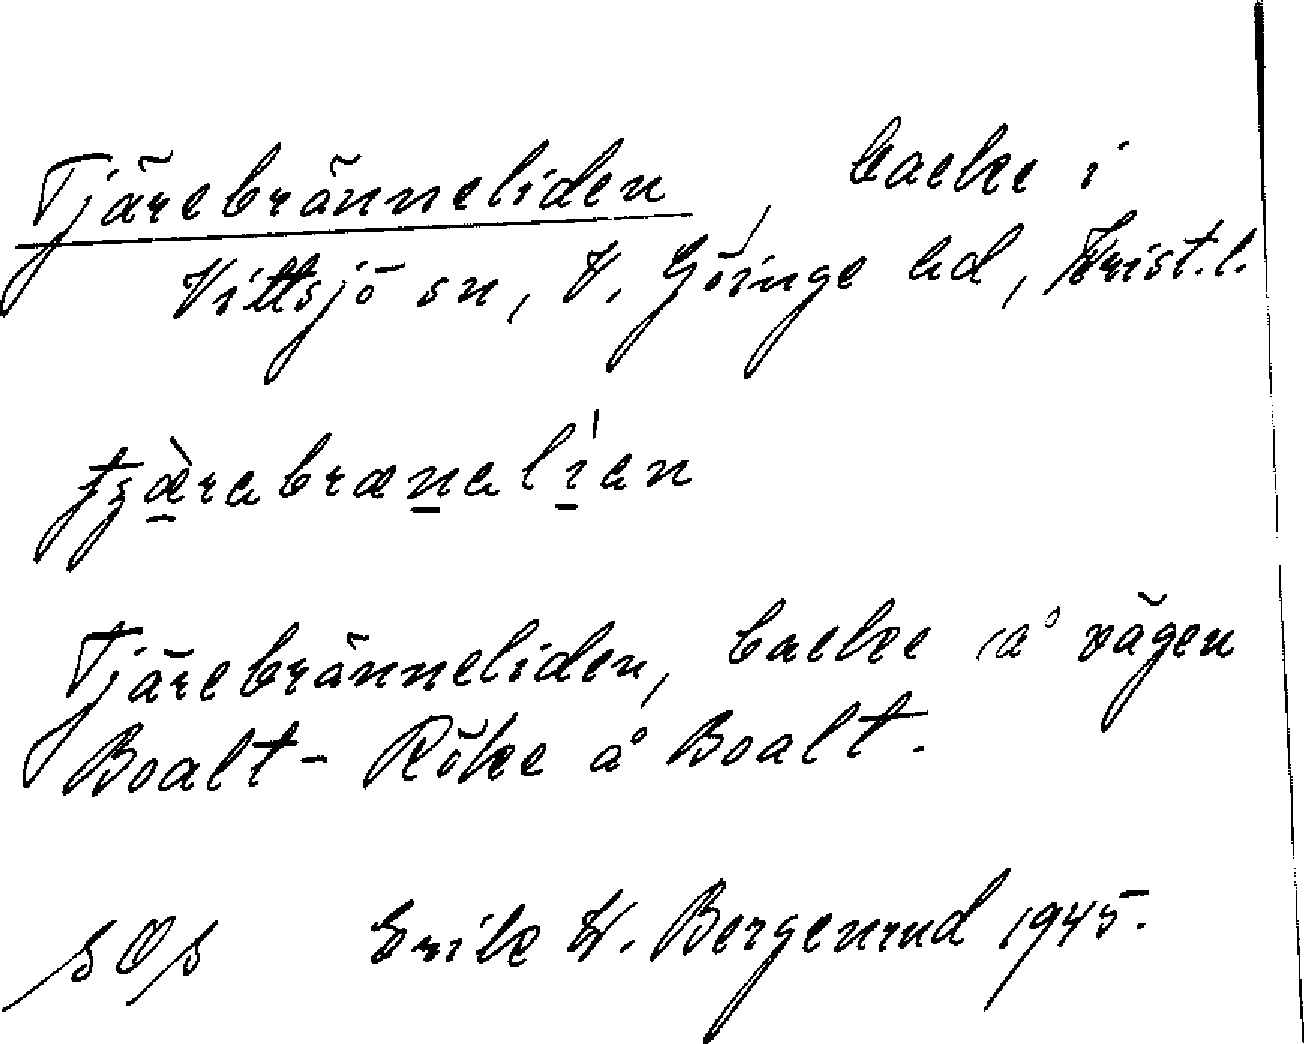 Tjärebränneliden, backe i
Vittsjö sn, V. Göinge hd, Krist. l.
Tjärebränneliden, backe å vägen
Boalt - Röke å Boalt.
Erik W. Bergenrud 1945.